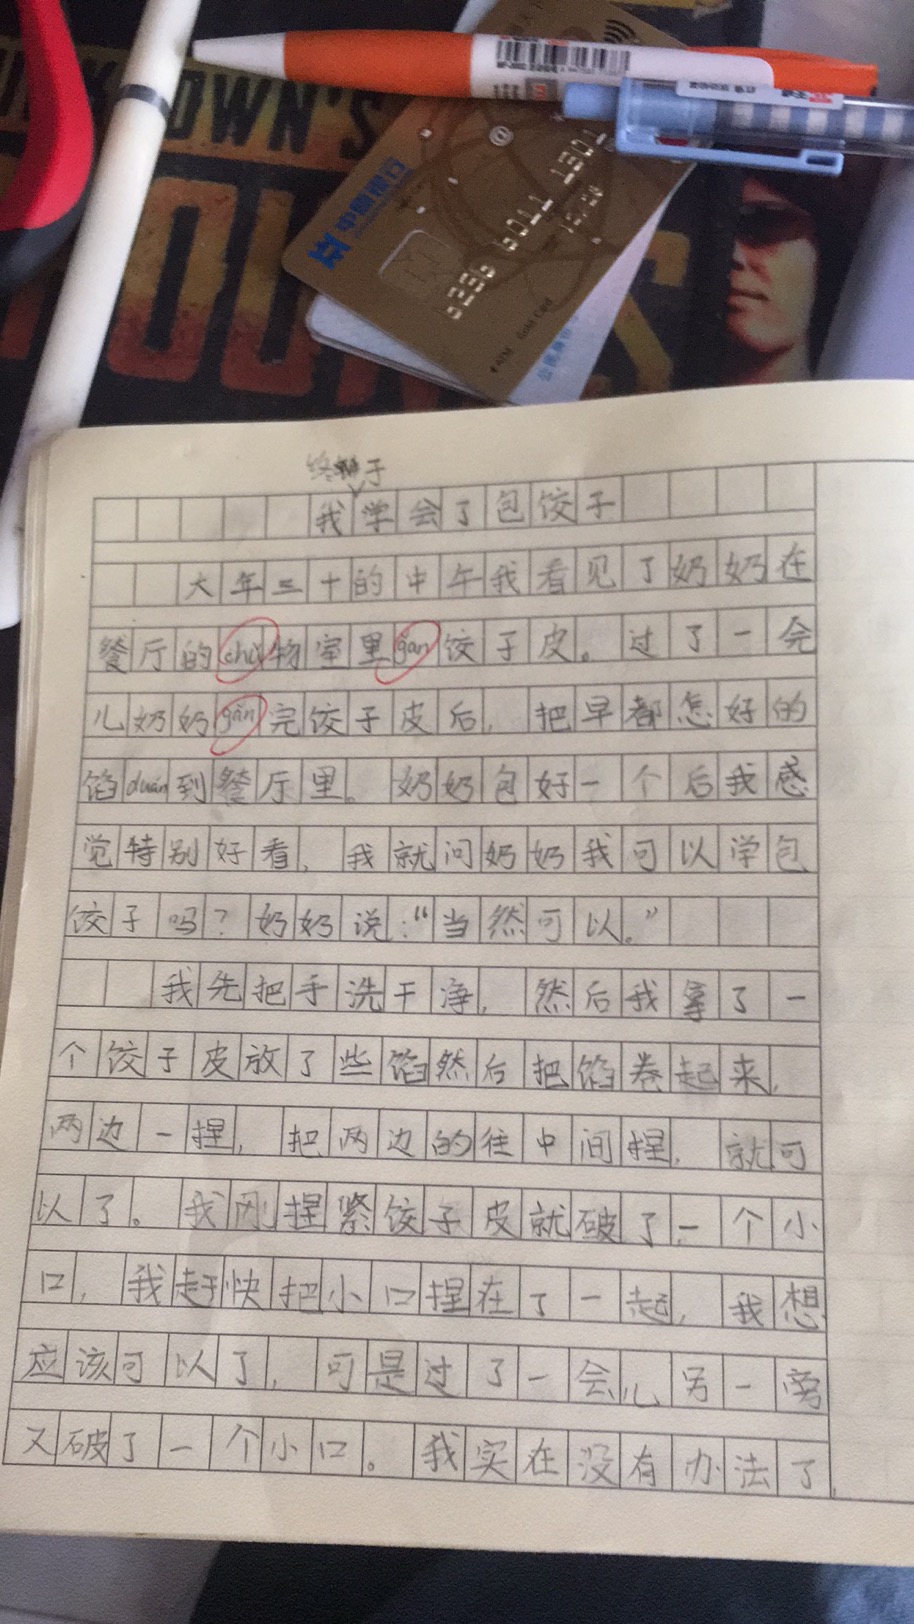 中国银行
ATM Gold Card
终于
我学会了包饺子
大年三十的中午我看见了奶奶在
餐厅的chǔ物室里gǎn饺子皮。过了一会
儿奶奶gǎn完饺子皮后，把早都怎好的
馅duān到餐厅里。奶奶包好一个后我感
觉特别好看，我就问奶奶我可以学包
饺子吗？奶奶说：“当然可以。”
我先把手洗干净，然后我拿了一
个饺子皮放了些馅然后把馅卷起来，
两边一捏，把两边的往中间捏，就可
以了。我刚捏紧饺子皮就破了一个小
口，我赶快把小口捏在了一起，我想
应该可以了，可是过了一会儿另一旁
又破了一个小口。我实在没有办法了，